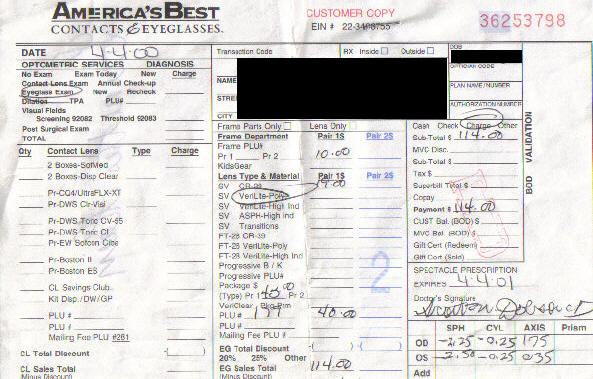 AMERICA'S BEST
CONTACTS & EYEGLASSES.
CUSTOMER COPY
EIN # 22-3498755
36253798
DATE 4-4-00
Transaction Code
RX Inside Outside
DOB
OPTICIAN CODE
OPTOMETRIC SERVICES DIAGNOSIS
No Exam Exam Today New Charge
Contact Lens Exam Annual Check-up
Eyeglass Exam New Recheck
Dilation TPA PLU#
Visual Fields
Screening 92082 Threshold 92083
Post Surgical Exam
TOTAL
NAME
STREET
CITY
PLAN NAME/NUMBER
AUTHORIZATION NUMBER
Qty Contact Lens Type Charge
2 Boxes-SofMed
2 Boxes-Disp Clear
Pr-CQ4/UltraFLX-XT
Pr-DWS Clr-Visi
Pr-DWS Toric CV-55
Pr-DWS Toric CI
Pr-EW Softcon Ciba
Pr-Boston II
Pr-Boston ES
CL Savings Club
Kit Disp/DW/GP
PLU #
PLU #
Mailing Fee PLU #261
CL Total Discount
CL Sales Total
(Minus Discount)
Frame Parts Only Lens Only
Frame Department Pair 1$ Pair 2$
Frame PLU#
Pr 1 Pr 2 10.00
KidsGear
Lens Type & Material Pair 1$ Pair 2$
SV CR-39 19.00
SV VeriLite-Poly
SV VeriLite-High Ind
SV ASPH-High Ind
SV Transitions
FT-28 CR-39
FT-28 VeriLite-Poly
FT-28 VeriLite-High Ind
Progressive B / K
Progressive PLU#
Package $
(Type) Pr 1 Pr 2
VeriClear Pkg Prm
PLU # 199 40.00
PLU #
Mailing Fee PLU #
EG Total Discount
20% 25% Other
EG Sales Total 114.00
(Minus Discount)
2
Cash Check Charge Other
Sub-Total $ 114.00
MVC Disc.
Sub-Total $
Tax $
Superbill Total $
Copay
Payment $ 114.00
CUST Bal. (BOD) $
MVC Bal. (BOD) $
Gift Cert (Redeem)
Gift Cert (Sold)
BOD VALIDATION
SPECTACLE PRESCRIPTION
EXPIRES 4-4-01
Doctor's Signature
SPH CYL AXIS Prism
OD -2.25 -0.25 175
OS -2.50 -0.25 035
Add